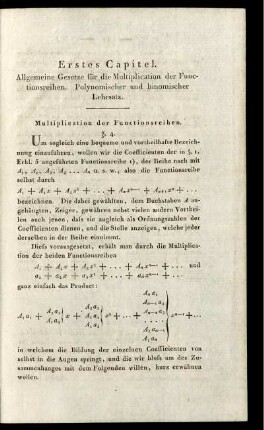 Erstes Capitel.
Allgemeine Gesetze für die Multiplication der Func-
tionsreihen. Polynomischer und binomischer
Lehrsatz.
Multiplication der Functionsreihen.
§. 4.
Um sogleich eine bequeme und vortheilhafte Bezeich-
nung einzuführen, wollen wir die Coefficienten der in §. 1.
Erkl. 5 angeführten Functionsreihe 1), der Reihe nach mit
A₀, A₁, A₂, A₃ … Aₙ u. s. w., also die Functionsreihe
selbst durch
A₀ + A₁x + A₂x² + … + Aₙxⁿ + Aₙ₊₁xⁿ⁺¹ + …
bezeichnen. Die dabei gewählten, dem Buchstaben A an-
gehängten, Zeiger, gewähren nebst vielen andern Vorthei-
len auch jenen, dass sie zugleich als Ordnungszahlen der
Coefficienten dienen, und die Stelle anzeigen, welche jeder
derselben in der Reihe einnimmt.
Diess vorausgesetzt, erhält man durch die Multiplica-
tion der beiden Functionsreihen
A₀ + A₁x + A₂x² + … + Aₙxⁿ + … und
a₀ + a₁x + a₂x² + … + aₙxⁿ + …
ganz einfach das Product:
in welchem die Bildung der einzelnen Coefficienten von
selbst in die Augen springt, und die wir bloss um des Zu-
sammenhanges mit dem Folgenden willen, kurz erwähnen
wollen.